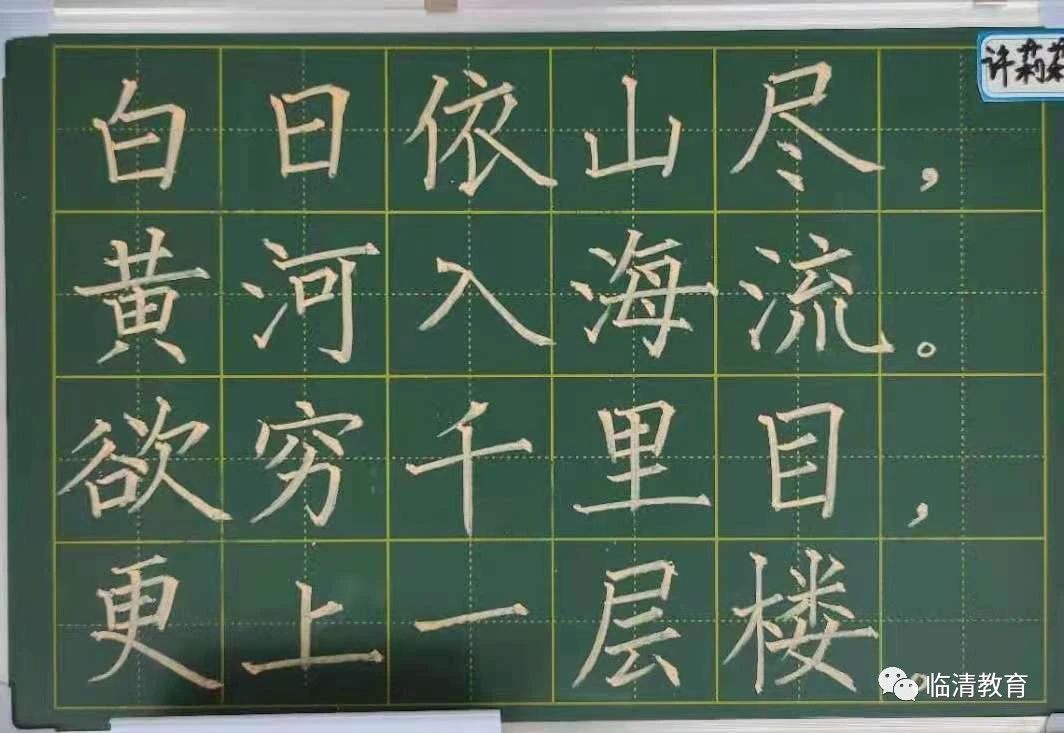 许莉莉
白日依山尽，
黄河入海流。
欲穷千里目，
更上一层楼。
临清教育